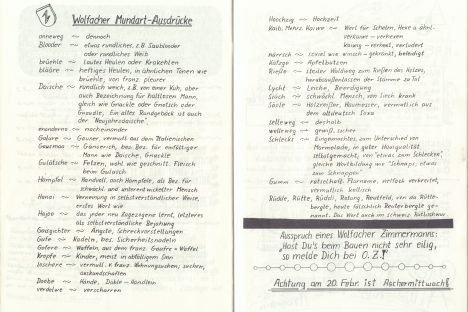 Wolfacher Mundart-Ausdrücke
anneweg ~ dennoch
Blooder ~ etwas rundlicher, z.B. Saublooder
oder rundliches Weib
brüehle ~ lautes Heulen oder Krakehlen
blääre ~ heftiges Heulen, in ähnlichen Tönen wie
brüehle, von franz. pleurer
Datsche ~ rundlich weich, z.B. von einer Kuh, aber
auch Bezeichnung für kaltblosen Mann,
gleich wie Gnackle oder Gnatsch oder
Gnaudle, Ein altes Rundgebäck ist auch
der "Neujohrdatsche".
enandere ~ nacheinander
Galore ~ Gauner, vermut. aus dem Italienischen
Gausmaa ~ Gänserich, bes. Bez. für einfältigen
Mann wie Datsche, Gnackle
Gulätsche ~ Fetzen, wohl wie geschnitt. Fleisch
beim Gulasch
Hämpfel ~ Handvoll, auch Hämpfele, als Bez. für
schwächl. und unterentwickelter Mensch
Hanoi ~ Verneinung zu selbstverständlicher Weise,
erstes Wort wie
Hajo ~ das jeder neu Zugezogene lernt, letzteres
als selbstverständliche Bejahung
Gaagzichter ~ Ängste, Schreckvorstellungen
Gufe ~ Nadeln, bes. Sicherheitsnadeln
Gofere ~ Waffeln, aus dem franz. Gaufre = Waffel
Kropfe ~ Kinder, meist in abfälligem Sinn
loschore ~ vermutl. v. franz. Wohnungsuchen, suchen,
auskundschaften
Doobe ~ Hände, Däble = Händlein
verdolwe ~ verscharren
Hoochzig ~ Hochzeit
Kaib, Mehrz. Kaiwe ~ Wort für Schelm, Hexe o. ähnl.
verkaiwe = verhexen
kaiwig = verhext, verludert
närrsch ~ soviel wie wünsch = gekränkt, beleidigt
Bütze ~ Apfelbutzen
Rieße ~ steiler Waldweg zum Rießen des Holzes,
herabschleifenlassen der Stämme zu Tal
Lycht ~ Leiche, Beerdigung
Süüch ~ schwächl. Mensch, von Siech krank
Sääle ~ Holzreißer, Haumesser, vermutlich aus
dem altdeutsch Saxo
selleweg ~ deshalb
wellerweg ~ gewiß, sicher
Schlecks ~ Eingemachtes, zum Unterschied von
Marmelade, in guter Hausqualität
selbstgemacht, von "etwas zum Schlecken",
gleiche Wortbildung wie "Schnepf, etwas
zum Schneppen"
Gumm ~ rätselhaft, Flurname, vielfach verbreitet,
vermutlich keltisch
Rüdde, Rütte, Rüddi, Rotung, Neutfeld, von da Rütte-
bergle, heute fälschlich Reuterbergle ge-
nannt. Das Wort auch im schweiz. Rütlischwur
Ausspruch eines Wolfacher Zimmermanns:
"Host Du's beim Bauen nicht sehr eilig,
so melde Dich bei O.Z.!"
Achtung am 20. Febr. ist Aschermittwoch!